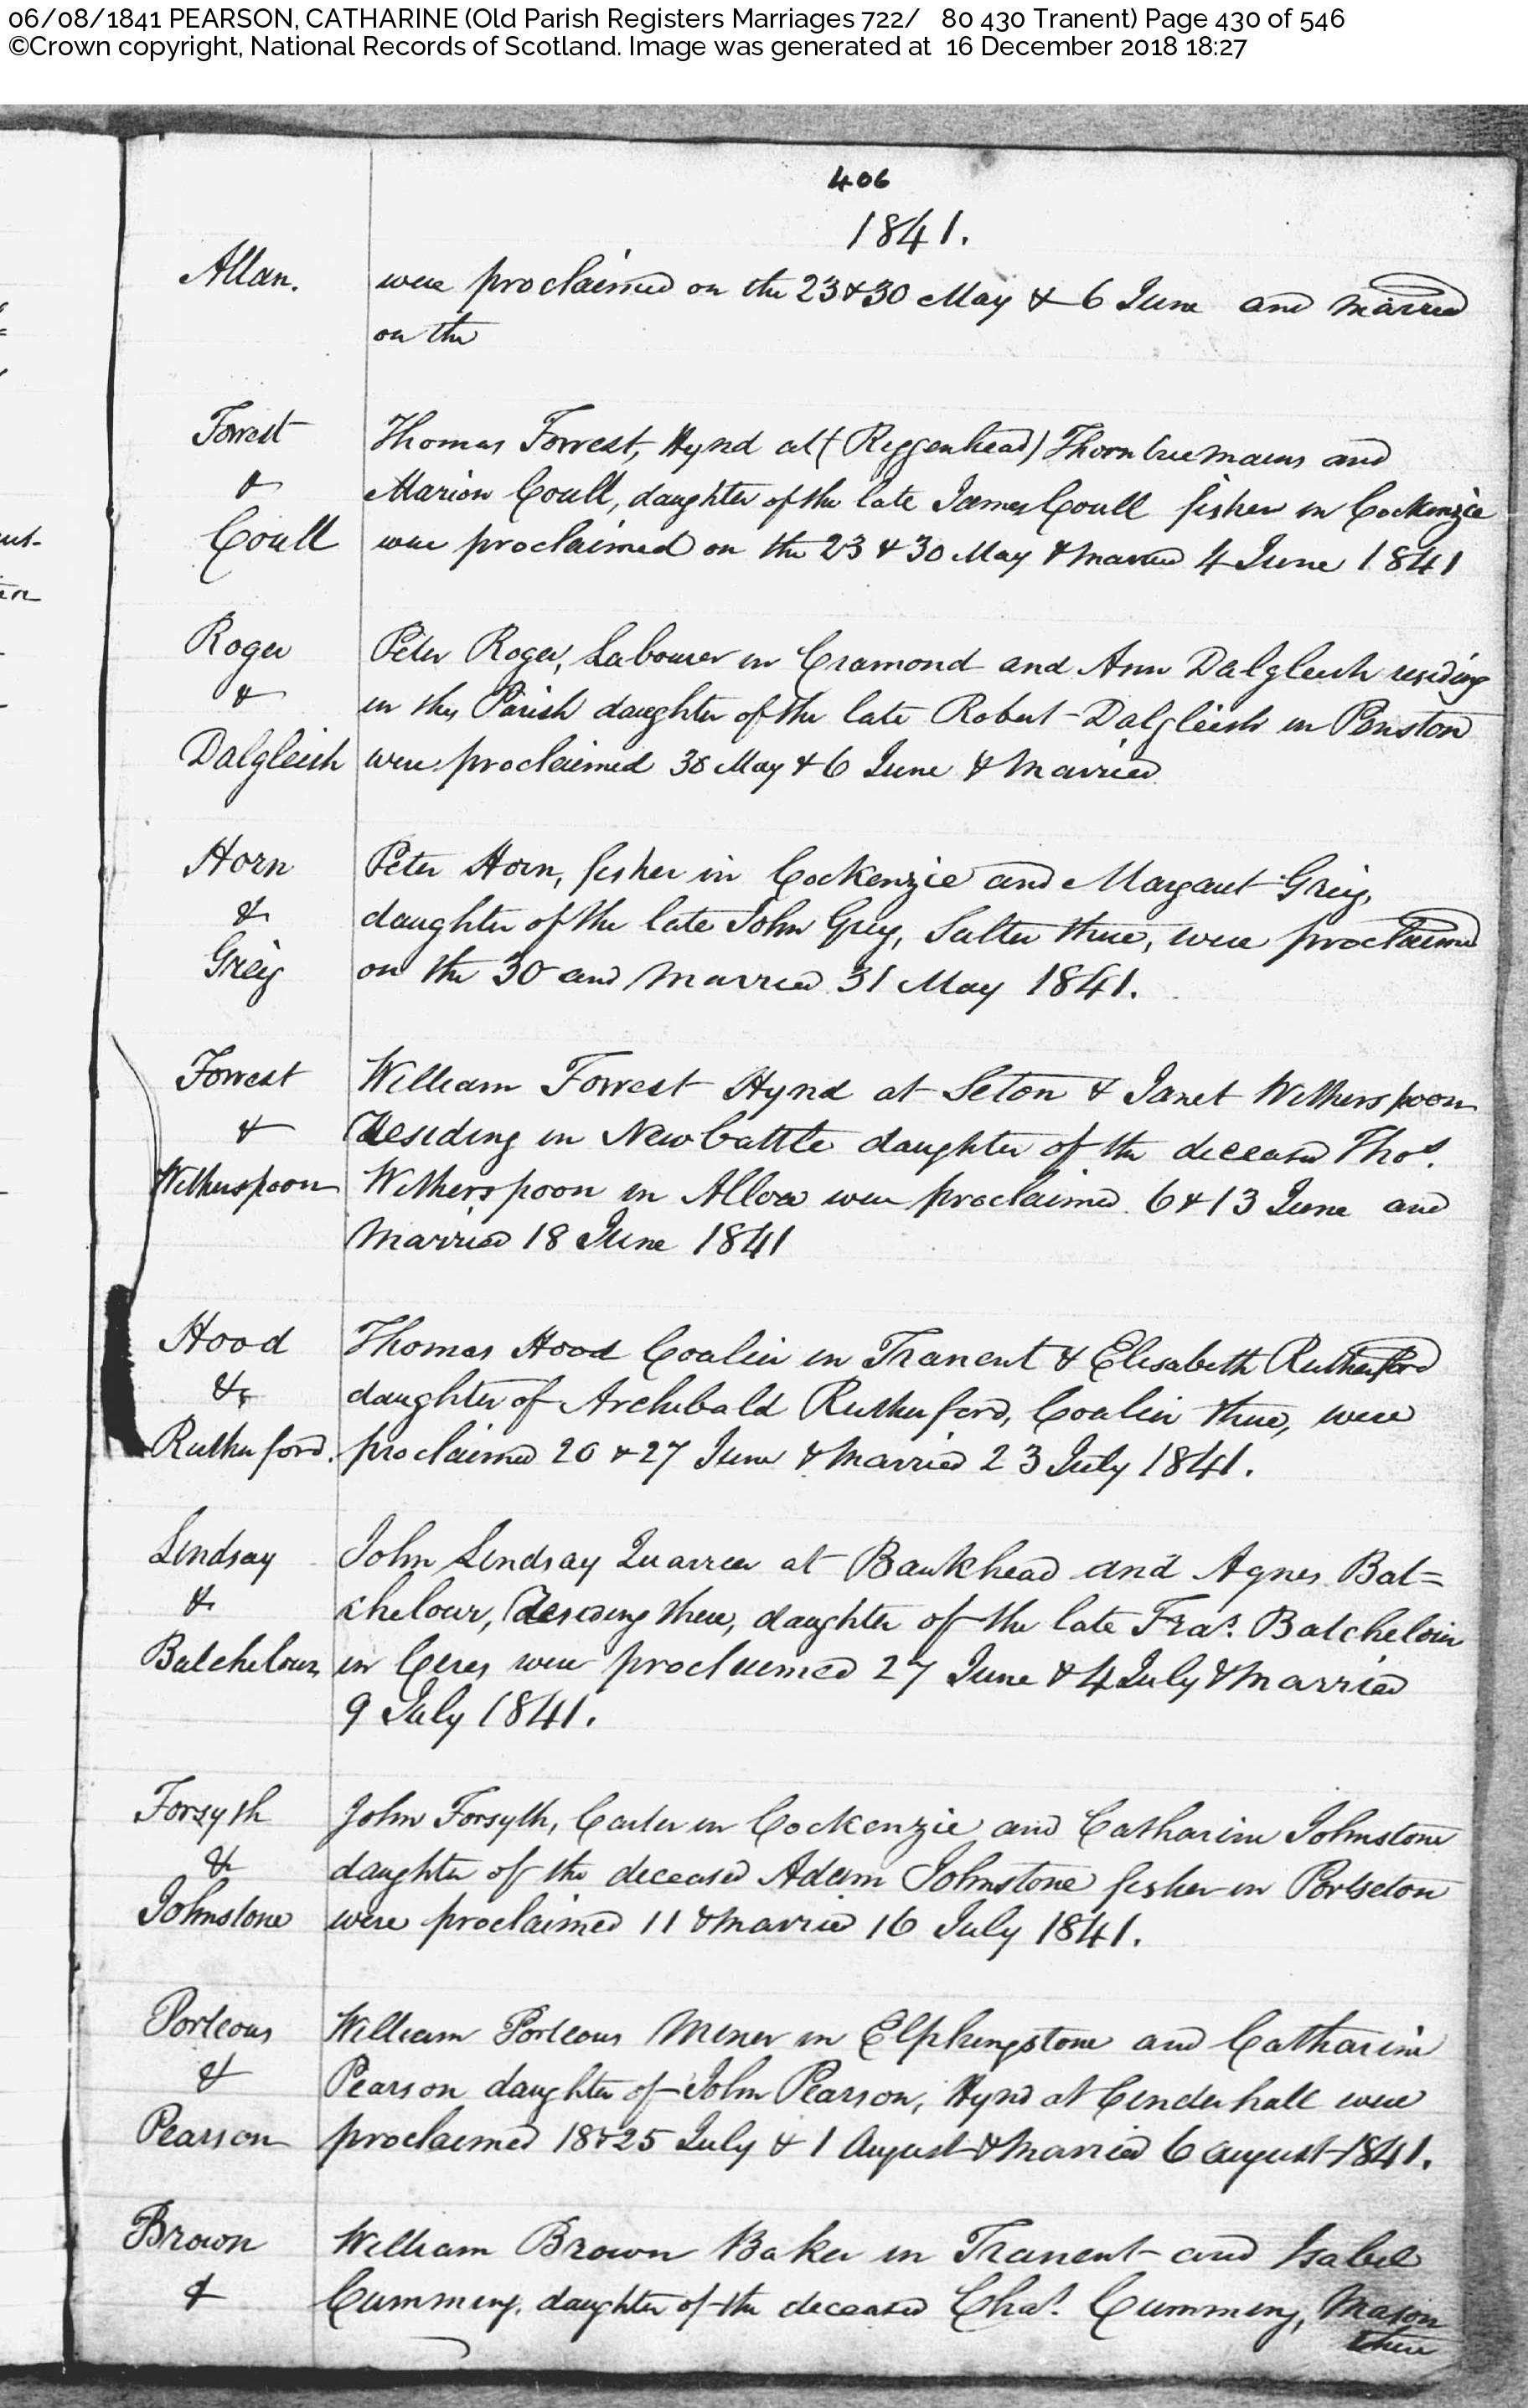 06/08/1841 PEARSON, CATHARINE (Old Parish Registers Marriages 722/ 80 430 Tranent) Page 430 of 546
©Crown copyright, National Records of Scotland. Image was generated at 16 December 2018 18:27
406
1841.
Allan. were proclaimed on the 23 & 30 May & 6 June and married
on the
Forrest Thomas Forrest, Hynd at (Riggenhead) Thorntreemains and
& Marion Coull, daughter of the late James Coull fisher in Cockenzie
Coull were proclaimed on the 23 & 30 May & married 4 June 1841
Roger Peter Roger, Labourer in Cramond and Ann Dalgleish residing
& in this Parish daughter of the late Robert Dalgleish in Penston
Dalgleish were proclaimed 30 May & 6 June & Married
Horn Peter Horn, fisher in Cockenzie and Margaret Greig,
& daughter of the late John Greig, Salter there, were proclaimed
Greig on the 30 and Married 31 May 1841.
Forrest William Forrest Hynd at Seton & Janet Witherspoon
& Residing in Newbattle daughter of the deceased Thos.
Witherspoon Witherspoon in Alloa were proclaimed 6 & 13 June and
Married 18 June 1841
Hood Thomas Hood Coalier in Tranent & Elisabeth Rutherford
& daughter of Archibald Rutherford, Coalier there, were
Rutherford. proclaimed 20 & 27 June & Married 23 July 1841.
Lindsay John Lindsay Quarrier at Bankhead and Agnes Bat=
& chelour, Residing there, daughter of the late Fras. Batchelour
Batchelour in Ceres were proclaimed 27 June & 4 July & Married
9 July 1841.
Forsyth John Forsyth, Carter in Cockenzie and Catharine Johnstone
& daughter of the deceased Adam Johnstone fisher in Portseton
Johnstone were proclaimed 11 & Married 16 July 1841.
Porteous William Porteous Miner in Elphingstone and Catharine
& Pearson daughter of John Pearson, Hynd at Cinderhall were
Pearson proclaimed 18 & 25 July & 1 August & Married 6 August 1841.
Brown William Brown Baker in Tranent and Isabel
& Cumming, daughter of the deceased Chas. Cumming, Mason
there